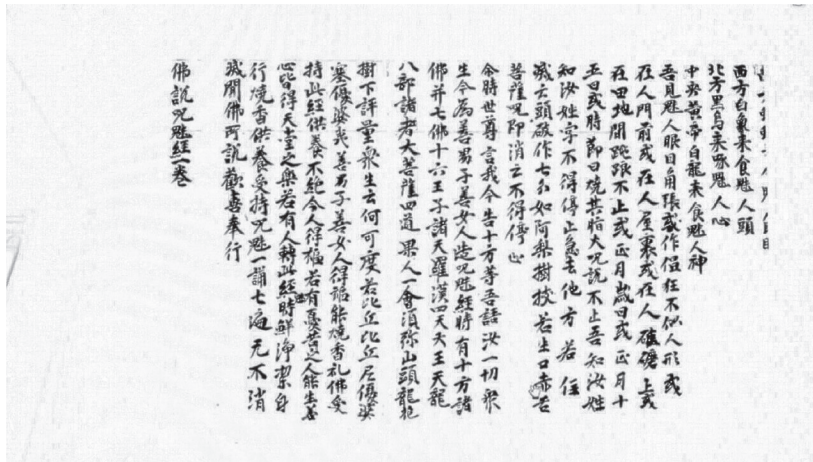 西方白象来食魃人頭
北方黑烏来啄魃人心
中央黄帝白龍来食魃人神
吾見魃人眼目角張或作倡狂不似人形或
在人門前或在人屋裏或在人碓磑上或
在田地間跪跟不止或正月歲日或正月十
五日或時節日燒其脂火呪説不止吾知汝姓
知汝姓字不得停止急去他方若住
或去頭破作七分如阿梨樹枝若出口赤舌
菩薩呪即消亡不得停止
尒時世尊言我今告十方等吾語汝一切衆
生今為善男子善女人造呪魃經時有十方諸
佛并七佛十六王子諸天羅漢四天大王天龍
八部諸者大菩薩四道果人一會須弥山頭龍抱
樹下評量衆生云何可度若比丘比丘尼優婆
塞優婆夷善男子善女人得詣能燒香礼佛受
持此經供養不絶令人得福若有智者之人能生善
心皆得天堂之樂若有人轉此經時鮮淨潔身
行燒香供養受持呪魃一誦七遍无不消
滅聞佛所説歡喜奉行
佛説呪魃經一卷